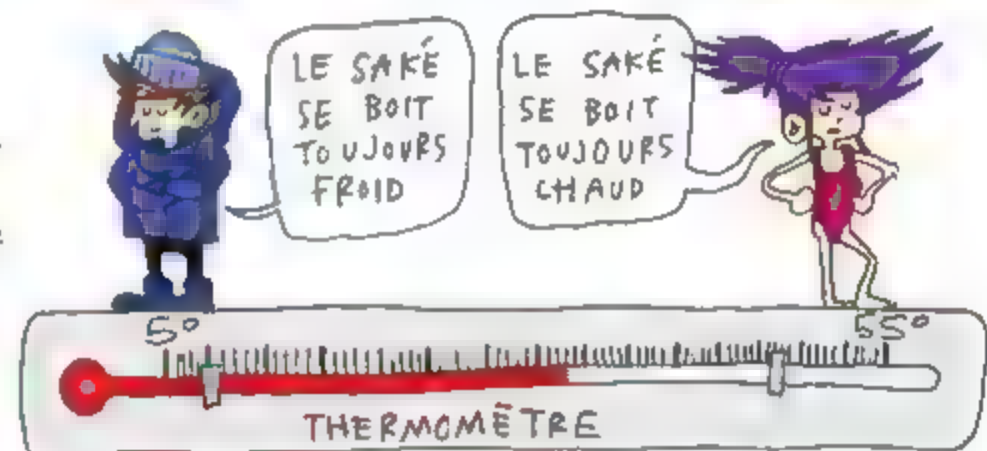 LE SAKÉ
SE BOIT
TOUJOURS
FROID
LE SAKÉ
SE BOIT
TOUJOURS
CHAUD
5°
55°
THERMOMÈTRE